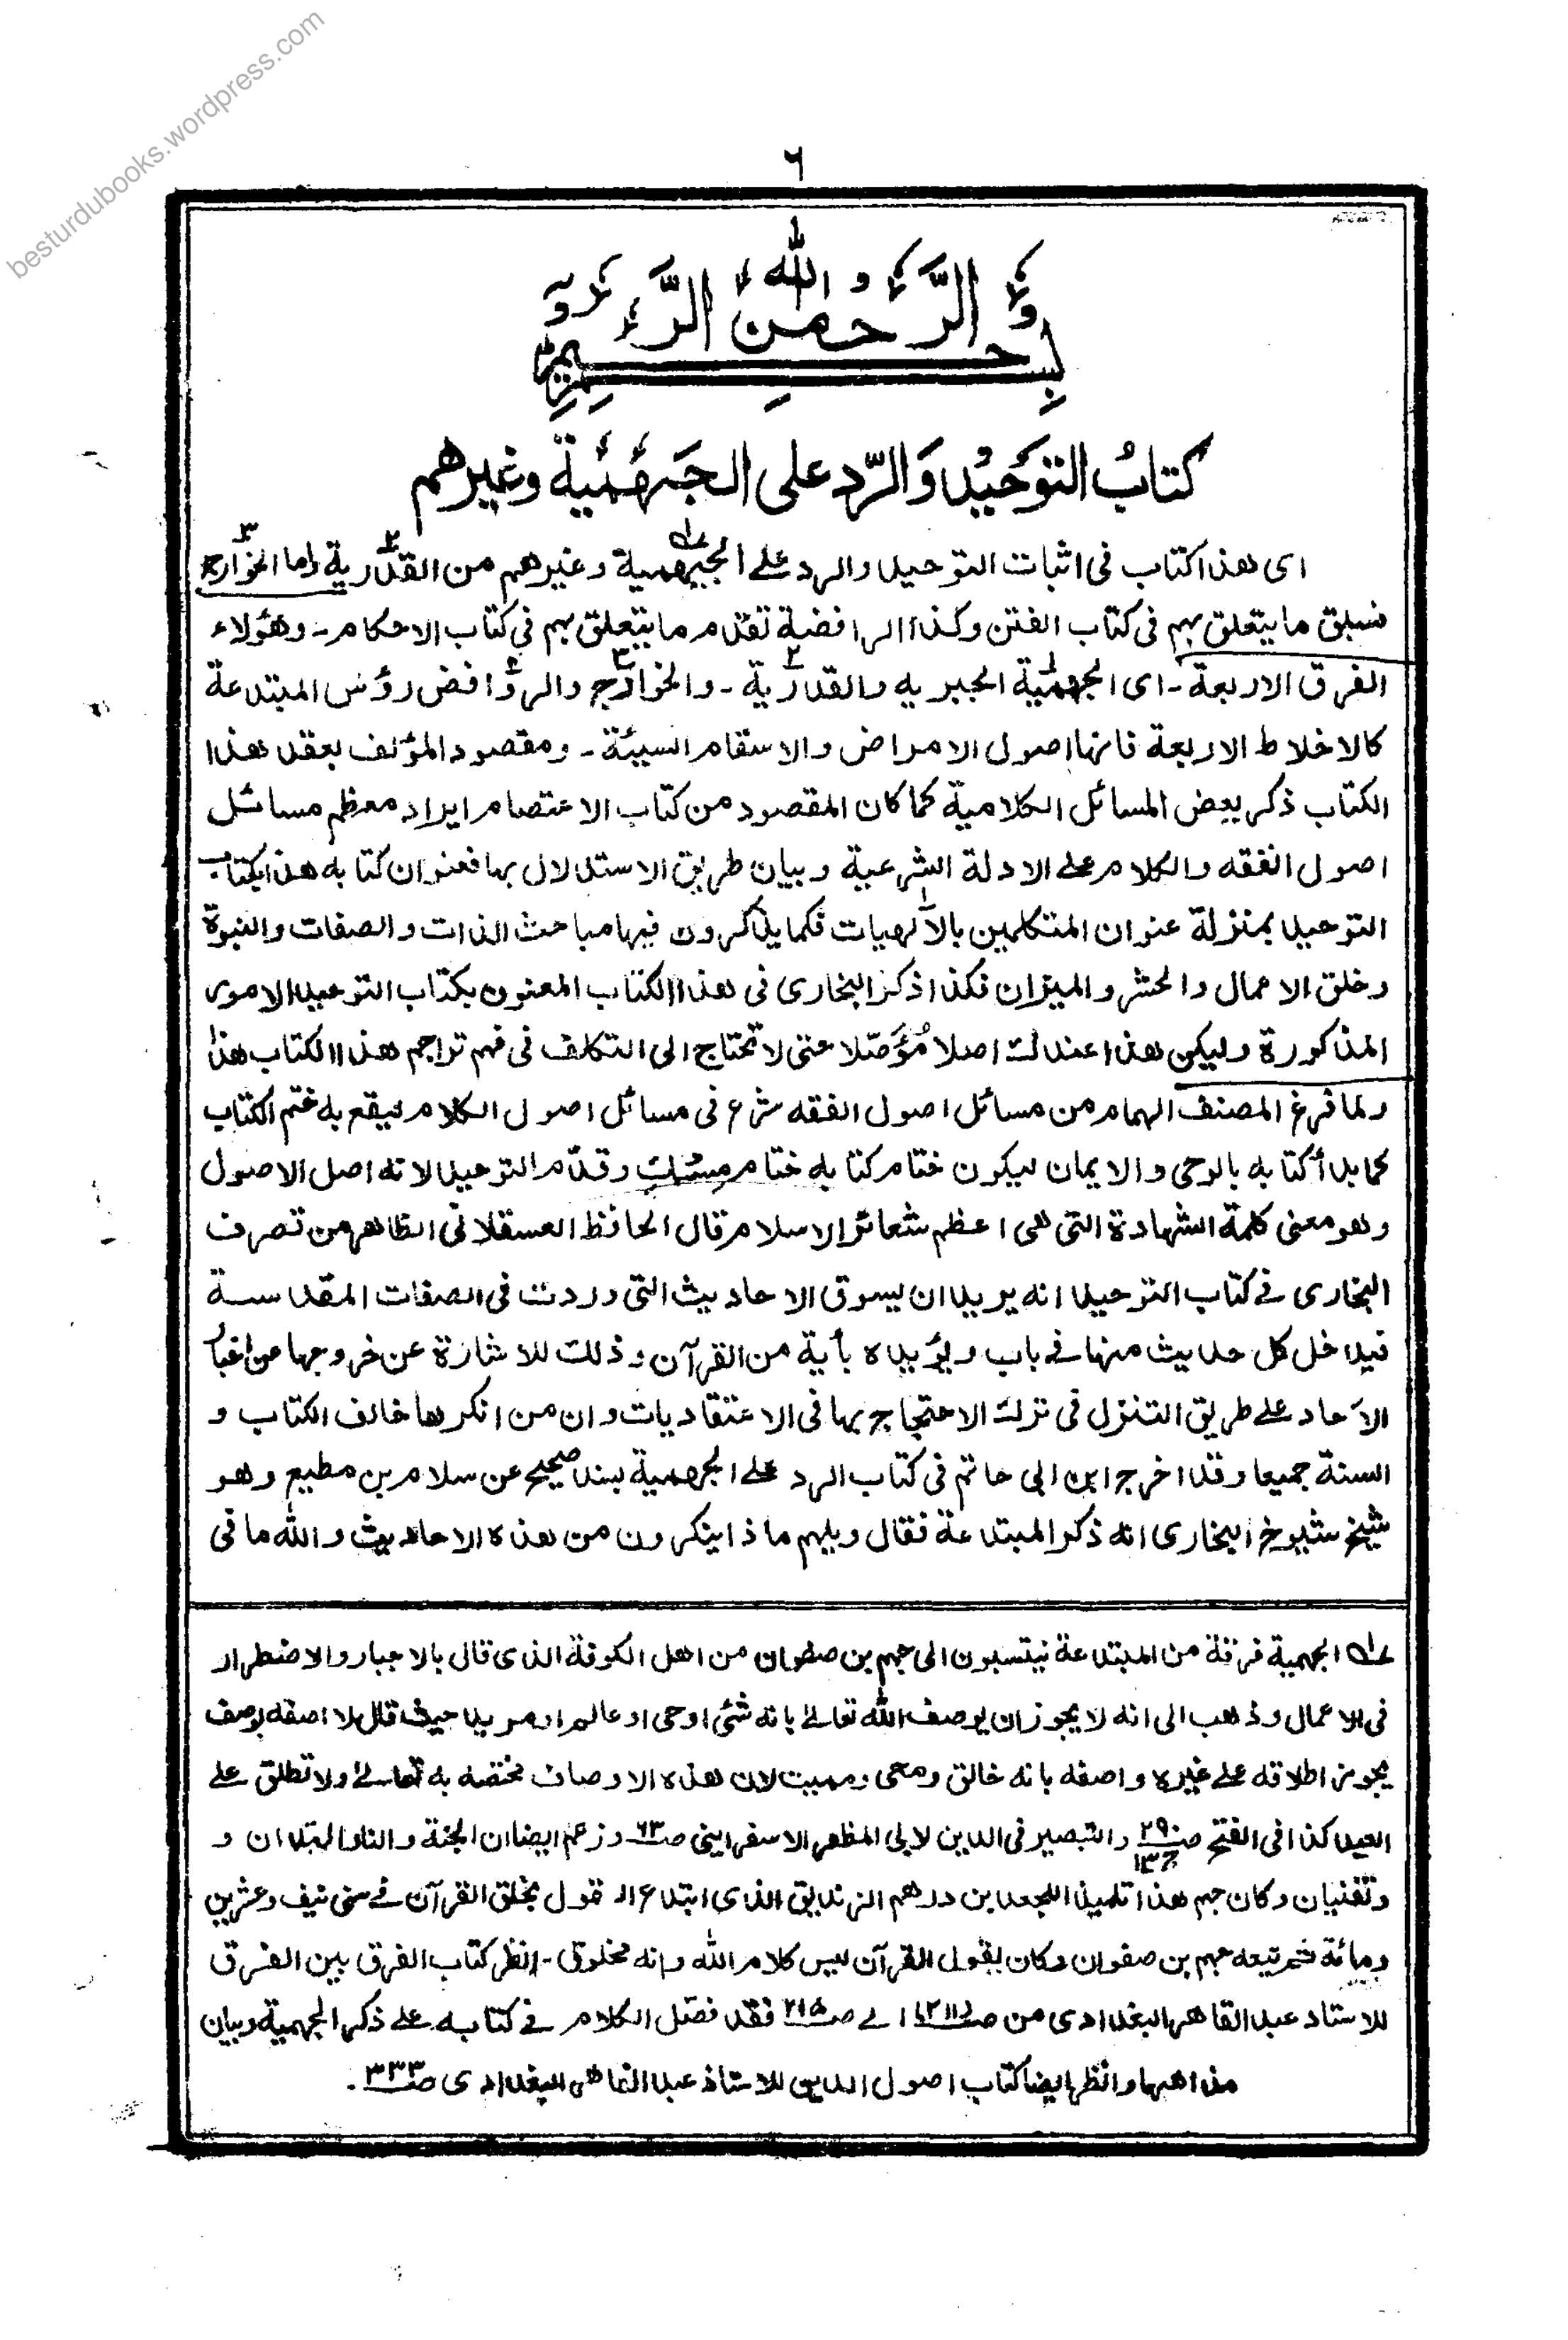 besturdubooks.wordpress.com
٦
بِسْمِ اللهِ الرَّحْمٰنِ الرَّحِيْمِ
كتابُ التوَحيْد وَالرّد على الجَهَمْيَّة وغيرهم
اى هذا كتاب فى اثبات التوحيد والرد على الجهمية وغيرهم من القدرية واما الخوارج
فسبق ما يتعلق بهم فى كتاب الفتن وكذا الرافضة تقدم ما يتعلق بهم فى كتاب الاحكام - وهؤلاء
الفرق الاربعة - اى الجهمية الجبريه والقدرية - والخوارج والروافض رؤس المبتدعة
كالاخلاط الاربعة فانها اصول الامراض والاسقام السيئة - ومقصود المؤلف بعقد هذا
الكتاب ذكر بعض المسائل الكلامية كما كان المقصود من كتاب الاعتصام ايراد معظم مسائل
اصول الفقه والكلام على الادلة الشرعية وبيان طريق الاستدلال بها فعنوان كتابه هذا بكتاب
التوحيد بمنزلة عنوان المتكلمين بالآلهيات فكما يذكرون فيها مباحث الذات والصفات والنبوة
وخلق الاعمال والحشر والميزان فكذا ذكر البخارى فى هذا الكتاب المعنون بكتاب التوحيد الامور
المذكورة وليكن هذا عندك اصلا مُؤَصّلا حتى لا تحتاج الى التكلف فى فهم تراجم هذا الكتاب هذا
ولما فرغ المصنف الهمام من مسائل اصول الفقه شرع فى مسائل اصول الكلام ليقع به ختم الكتاب
كما بدأ كتابه بالوحى والايمان ليكون ختام كتابه ختام مسك وقدّم التوحيد لانه اصل الاصول
وهو معنى كلمة الشهادة التى هى اعظم شعائر الاسلام قال الحافظ العسقلانى الظاهر من تصرف
البخارى فے كتاب التوحيد انه يريد ان يسوق الاحاديث التى وردت فى الصفات المقدسة
فيدخل كل حديث منها فے باب ويؤيده بأية من القرآن وذلك للاشارة عن خروجها عن اخبار
الآحاد على طريق التنزل فى ترك الاحتجاج بها فى الاعتقاديات وان من انكرها خالف الكتاب و
السنة جميعا وقد اخرج ابن ابى حاتم فى كتاب الرد على الجهمية بسند صحيح عن سلام بن مطيع وهو
شيخ شيوخ البخارى انه ذكر المبتدعة فقال ويلهم ماذا ينكرون من هذه الاحاديث والله ما فى
لـ الجهمية فرقة من المبتدعة ينتسبون الى جهم بن صفوان من اهل الكوفة الذى قال بالاجبار والاضطرار
فى الاعمال وذهب الى انه لا يجوز ان يوصف الله تعالے بانه شئ او حى او عالم او مريد حيث قال لا اصفه بوصف
يجوز اطلاقه على غيره واصفه بانه خالق ومحى ومميت لان هذه الاوصاف مختصه به تعالے ولا تطلق على
العبد كذا فى الفتح صـ ٢٩٠ ج ١٣ والتبصير فى الدين لابى المظفر الاسفراينى صـ ٦٣ وزعم ايضا ان الجنة والنار تبتدان و
وتفنيان وكان جهم هذا تلميذا للجعد بن درهم الزنديق الذى ابتدع القول بخلق القرآن فے سنى نيف وعشرين
ومائة ثم تبعه جهم بن صفوان وكان يقول القرآن ليس كلام الله وانه مخلوق - انظر كتاب الفرق بين الفرق
للاستاد عبد القاهر البغدادى من صـ ٢١١ الے صـ ٢١٥ فقد فصّل الكلام فے كتابه على ذكر الجهمية وبيان
مذاهبها وانظر ايضا كتاب اصول الدين للاستاذ عبد القاهر البغدادى صـ ٣٣٣ .